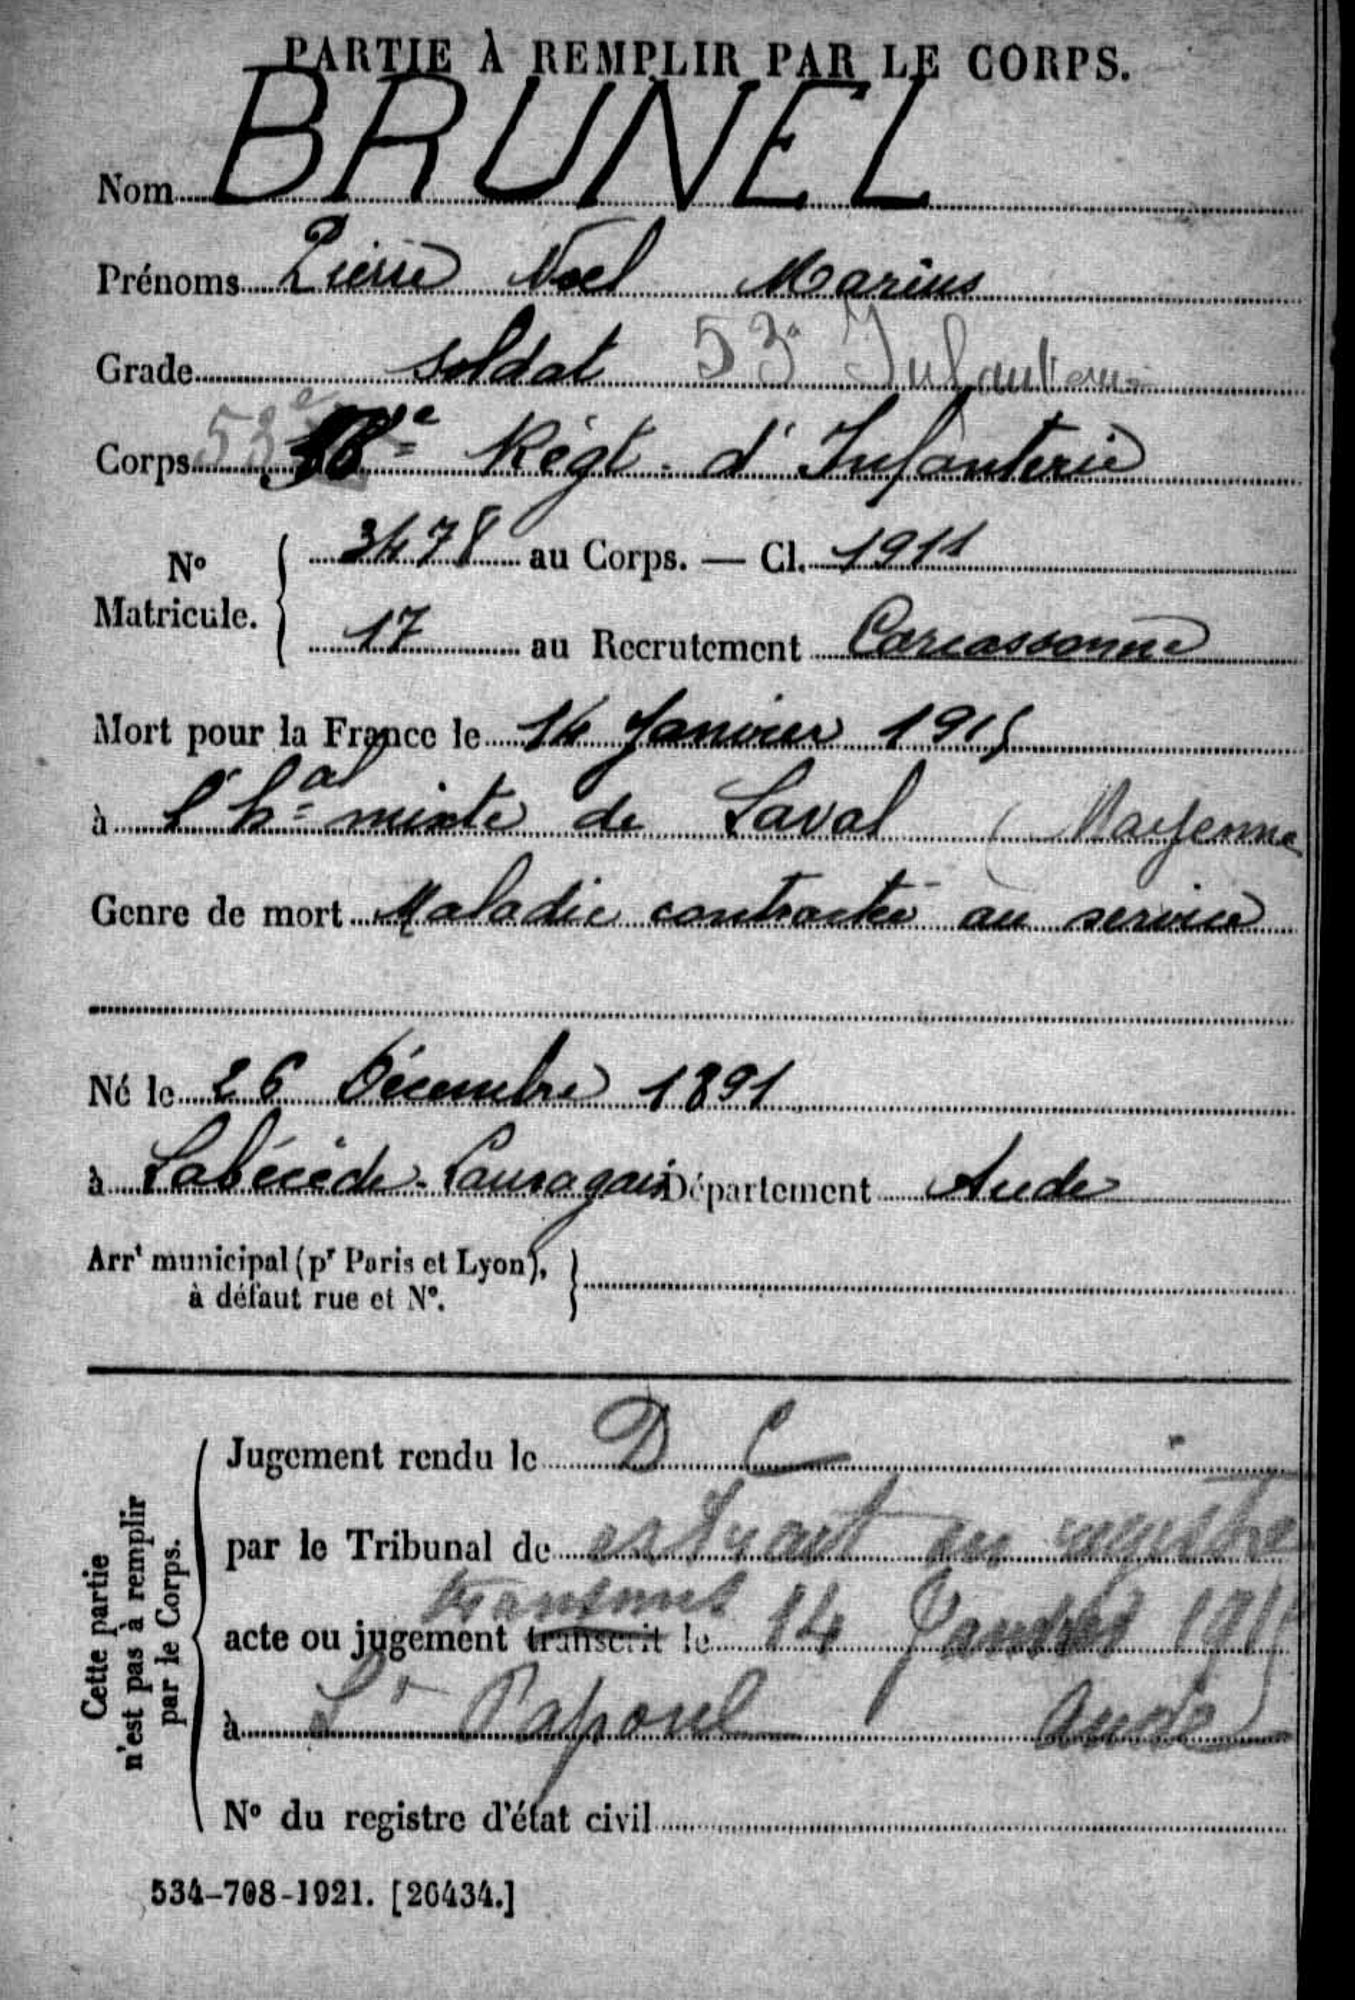 PARTIE À REMPLIR PAR LE CORPS.
Nom BRUNEL
Prénoms Pierre Noel Marius
Grade soldat 53e Infanterie
Corps 53e Régt. d'Infanterie
No Matricule. { 3478 au Corps. — Cl. 1911
17 au Recrutement Carcassonne
Mort pour la France le 14 Janvier 1915
à l'hal mixte de Laval (Mayenne
Genre de mort Maladie contractée au service
Né le 26 Décembre 1891
à Labécède-Lauragais Département Aude
Arrt municipal (pr Paris et Lyon), à défaut rue et No.
Cette partie n'est pas à remplir par le Corps.
Jugement rendu le D C
par le Tribunal de extrait en registre
transmis
acte ou jugement transcrit le 14 Janvier 1915
à St Papoul Aude
No du registre d'état civil
534-708-1921. [26434.]